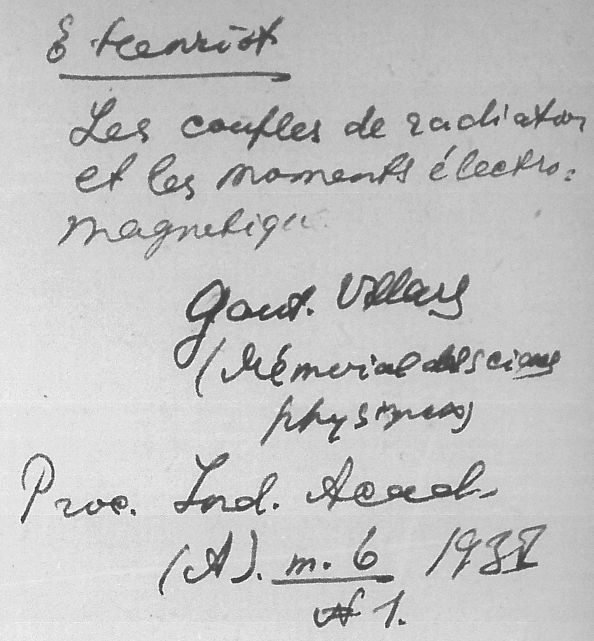 E Henriot
Les couples de radiation
et les moments électro=
magnetique
Gaut. Villars
(Mémorial des sciences
physiques)
Proc. Ind. Acad.
(A). m. 6 1937
N 1.